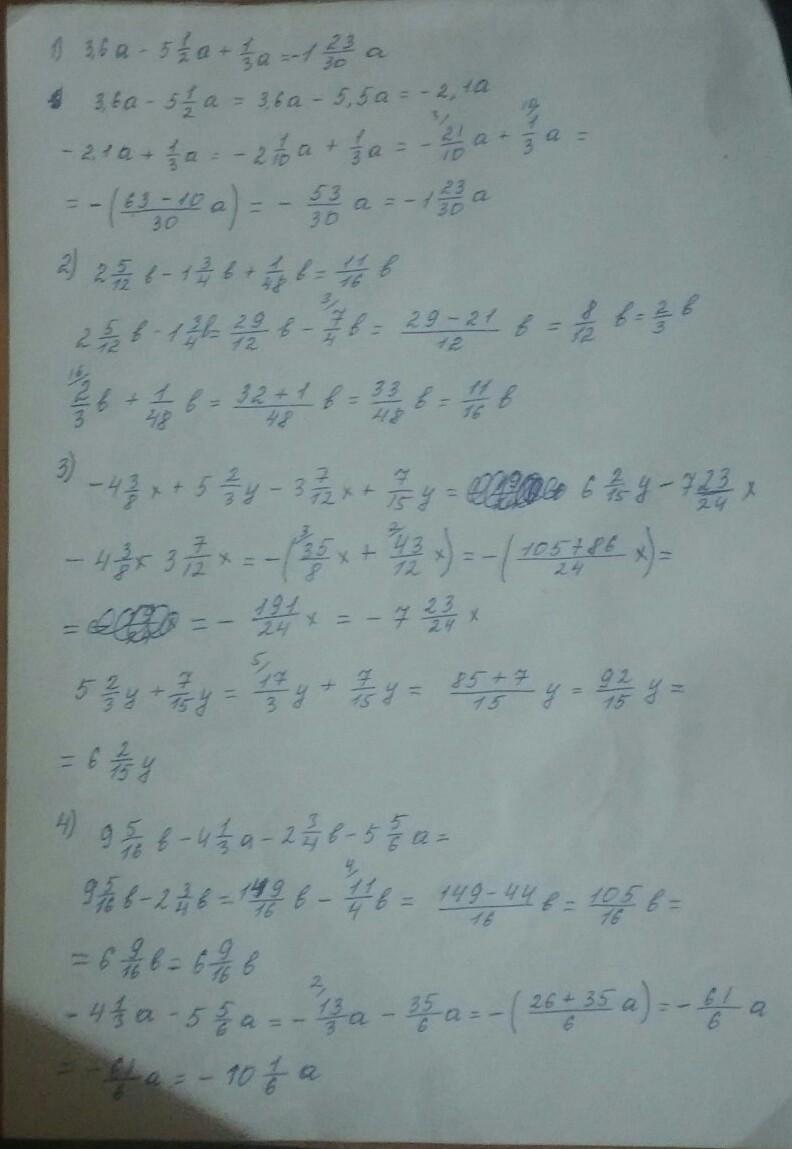 1) 3,6a - 5 1/2 a + 1/3 a = -1 23/30 a
3,6a - 5 1/2 a = 3,6a - 5,5a = -2,1a
-2,1a + 1/3 a = -2 1/10 a + 1/3 a = - 3/ 21/10 a + 10/ 1/3 a =
= -(63-10/30 a) = - 53/30 a = -1 23/30 a
2) 2 5/12 в - 1 3/4 в + 1/48 в = 11/16 в
2 5/12 в - 1 3/4 в = 29/12 в - 3/ 7/4 в = 29-21/12 в = 8/12 в = 2/3 в
16/ 2/3 в + 1/48 в = 32+1/48 в = 33/48 в = 11/16 в
3) -4 3/8 x + 5 2/3 y - 3 7/12 x + 7/15 y = 6 2/15 y - 7 23/24 x
- 4 3/8 x - 3 7/12 x = -(3/ 35/8 x + 2/ 43/12 x) = -(105+86/24 x) =
= = - 191/24 x = - 7 23/24 x
5 2/3 y + 7/15 y = 5/ 17/3 y + 7/15 y = 85+7/15 y = 92/15 y =
= 6 2/15 y
4) 9 5/16 в - 4 1/3 a - 2 3/4 в - 5 5/6 a =
9 5/16 в - 2 3/4 в = 149/16 в - 4/ 11/4 в = 149-44/16 в = 105/16 в =
= 6 9/16 в = 6 9/16 в
- 4 1/3 a - 5 5/6 a = - 2/ 13/3 a - 35/6 a = -(26+35/6 a) = - 61/6 a
= - 61/6 a = - 10 1/6 a